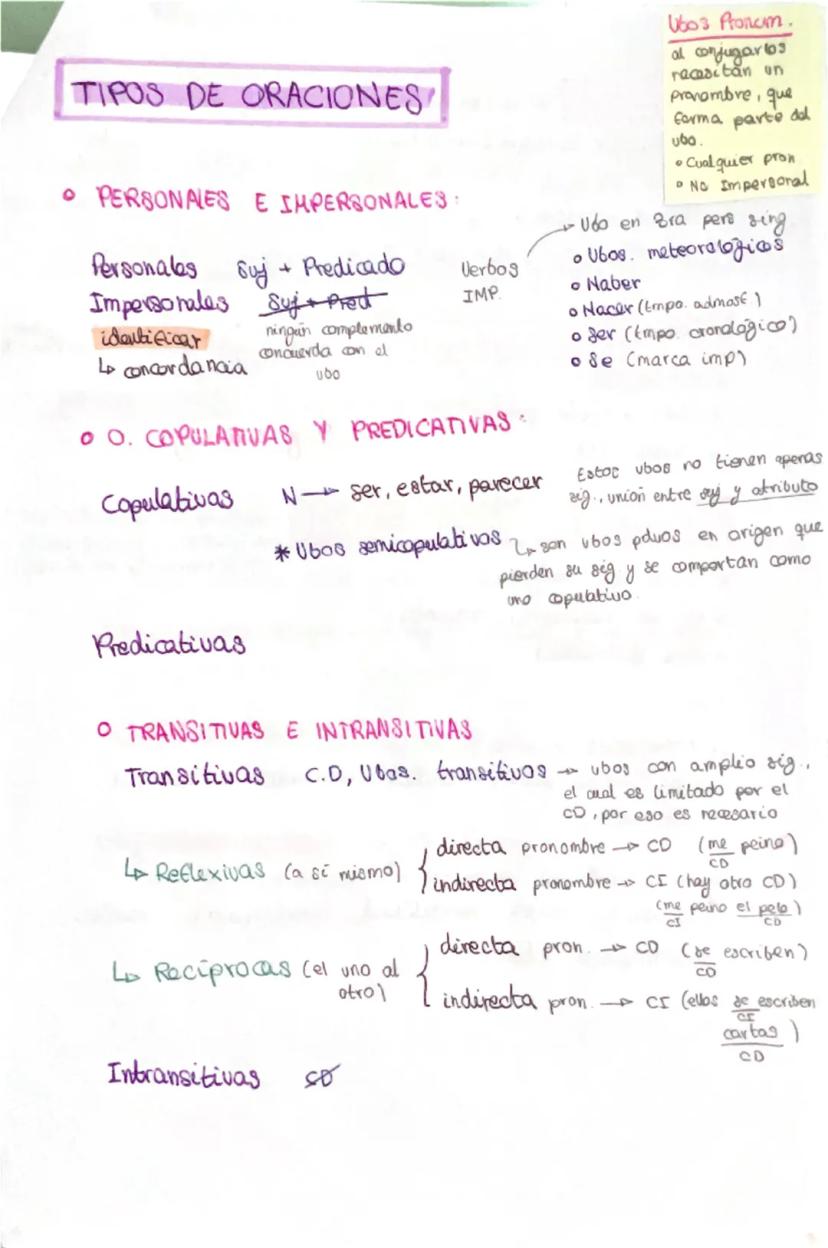 Vbos Pronom.
al conjugarlos
necesitan un
pronombre, que
forma parte del
vbo.
• Cualquier pron
• No Impersonal
TIPOS DE ORACIONES
• PERSONALES E IMPERSONALES:
Personales Suj + Predicado
Impersonales Suj + Pred
identificar
↳ concordancia
ningún complemento
concuerda con el
vbo
Verbos
IMP.
→ Vbo en 3ra pers sing
• Vbos. meteorológicos
• Haber
• Hacer (tmpo. admosf)
• Ser (tmpo. cronológico)
• Se (marca imp)
• O. COPULATIVAS Y PREDICATIVAS:
Copulativas N → ser, estar, parecer
Estos vbos no tienen apenas
sig., unión entre suj y atributo
* Vbos semicopulativos ↳ son vbos pdvos en origen que
pierden su sig y se comportan como
uno copulativo.
Predicativas
O TRANSITIVAS E INTRANSITIVAS
Transitivas C.D, Vbos. transitivos → vbos con amplio sig.,
el cual es limitado por el
CD, por eso es necesario
↳ Reflexivas (a sí mismo) { directa pronombre → CD (me peino)
CD
indirecta pronombre → CI (hay otro CD)
(me peino el pelo)
CI CD
↳ Recíprocas (el uno al
otro)
{ directa pron. → CD (se escriben)
CD
indirecta pron. → CI (ellos se escriben
CI
cartas)
CD
Intransitivas CD